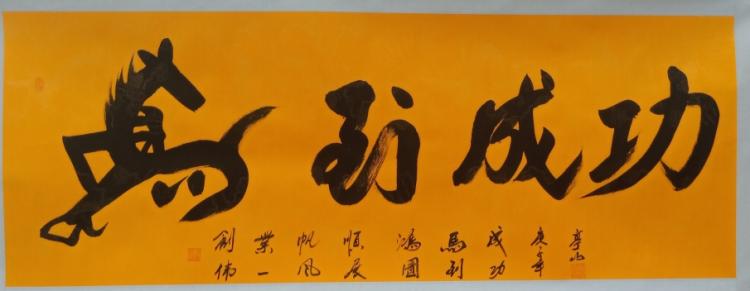 馬到成功
創偉
業一
帆風
順展
鴻圖
馬到
成功
庚子年
亭山